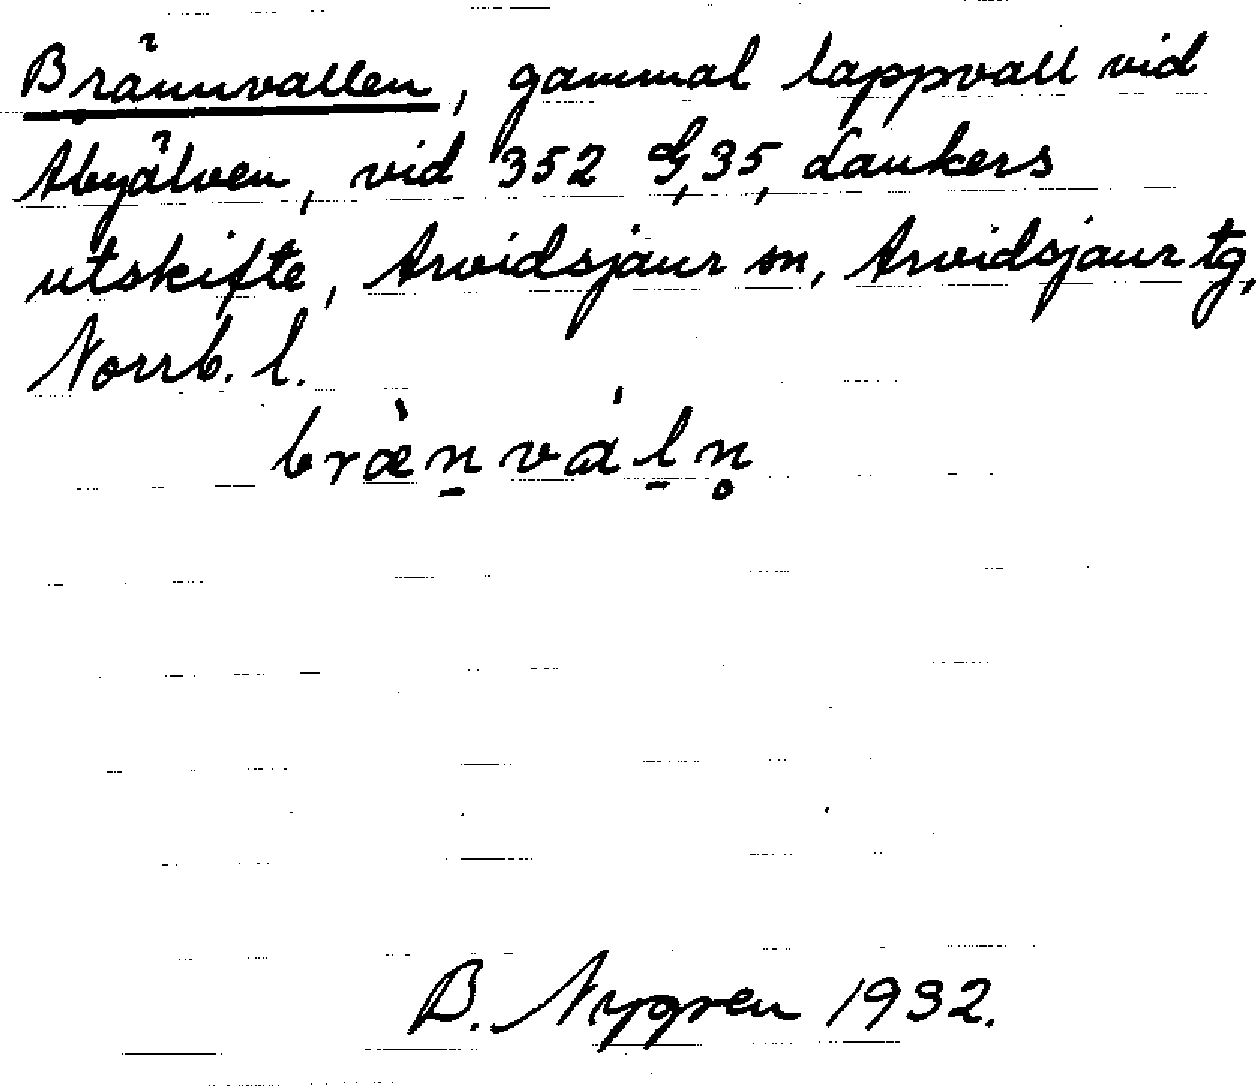 Brännvallen, gammal lappvall vid
Abyälven, vid 352 G,35, Laukers
utskifte, Arvidsjaur sn, Arvidsjaur tg,
Norrb. l.
bræ̀n̠váḷn̥
B. Nygren 1932.